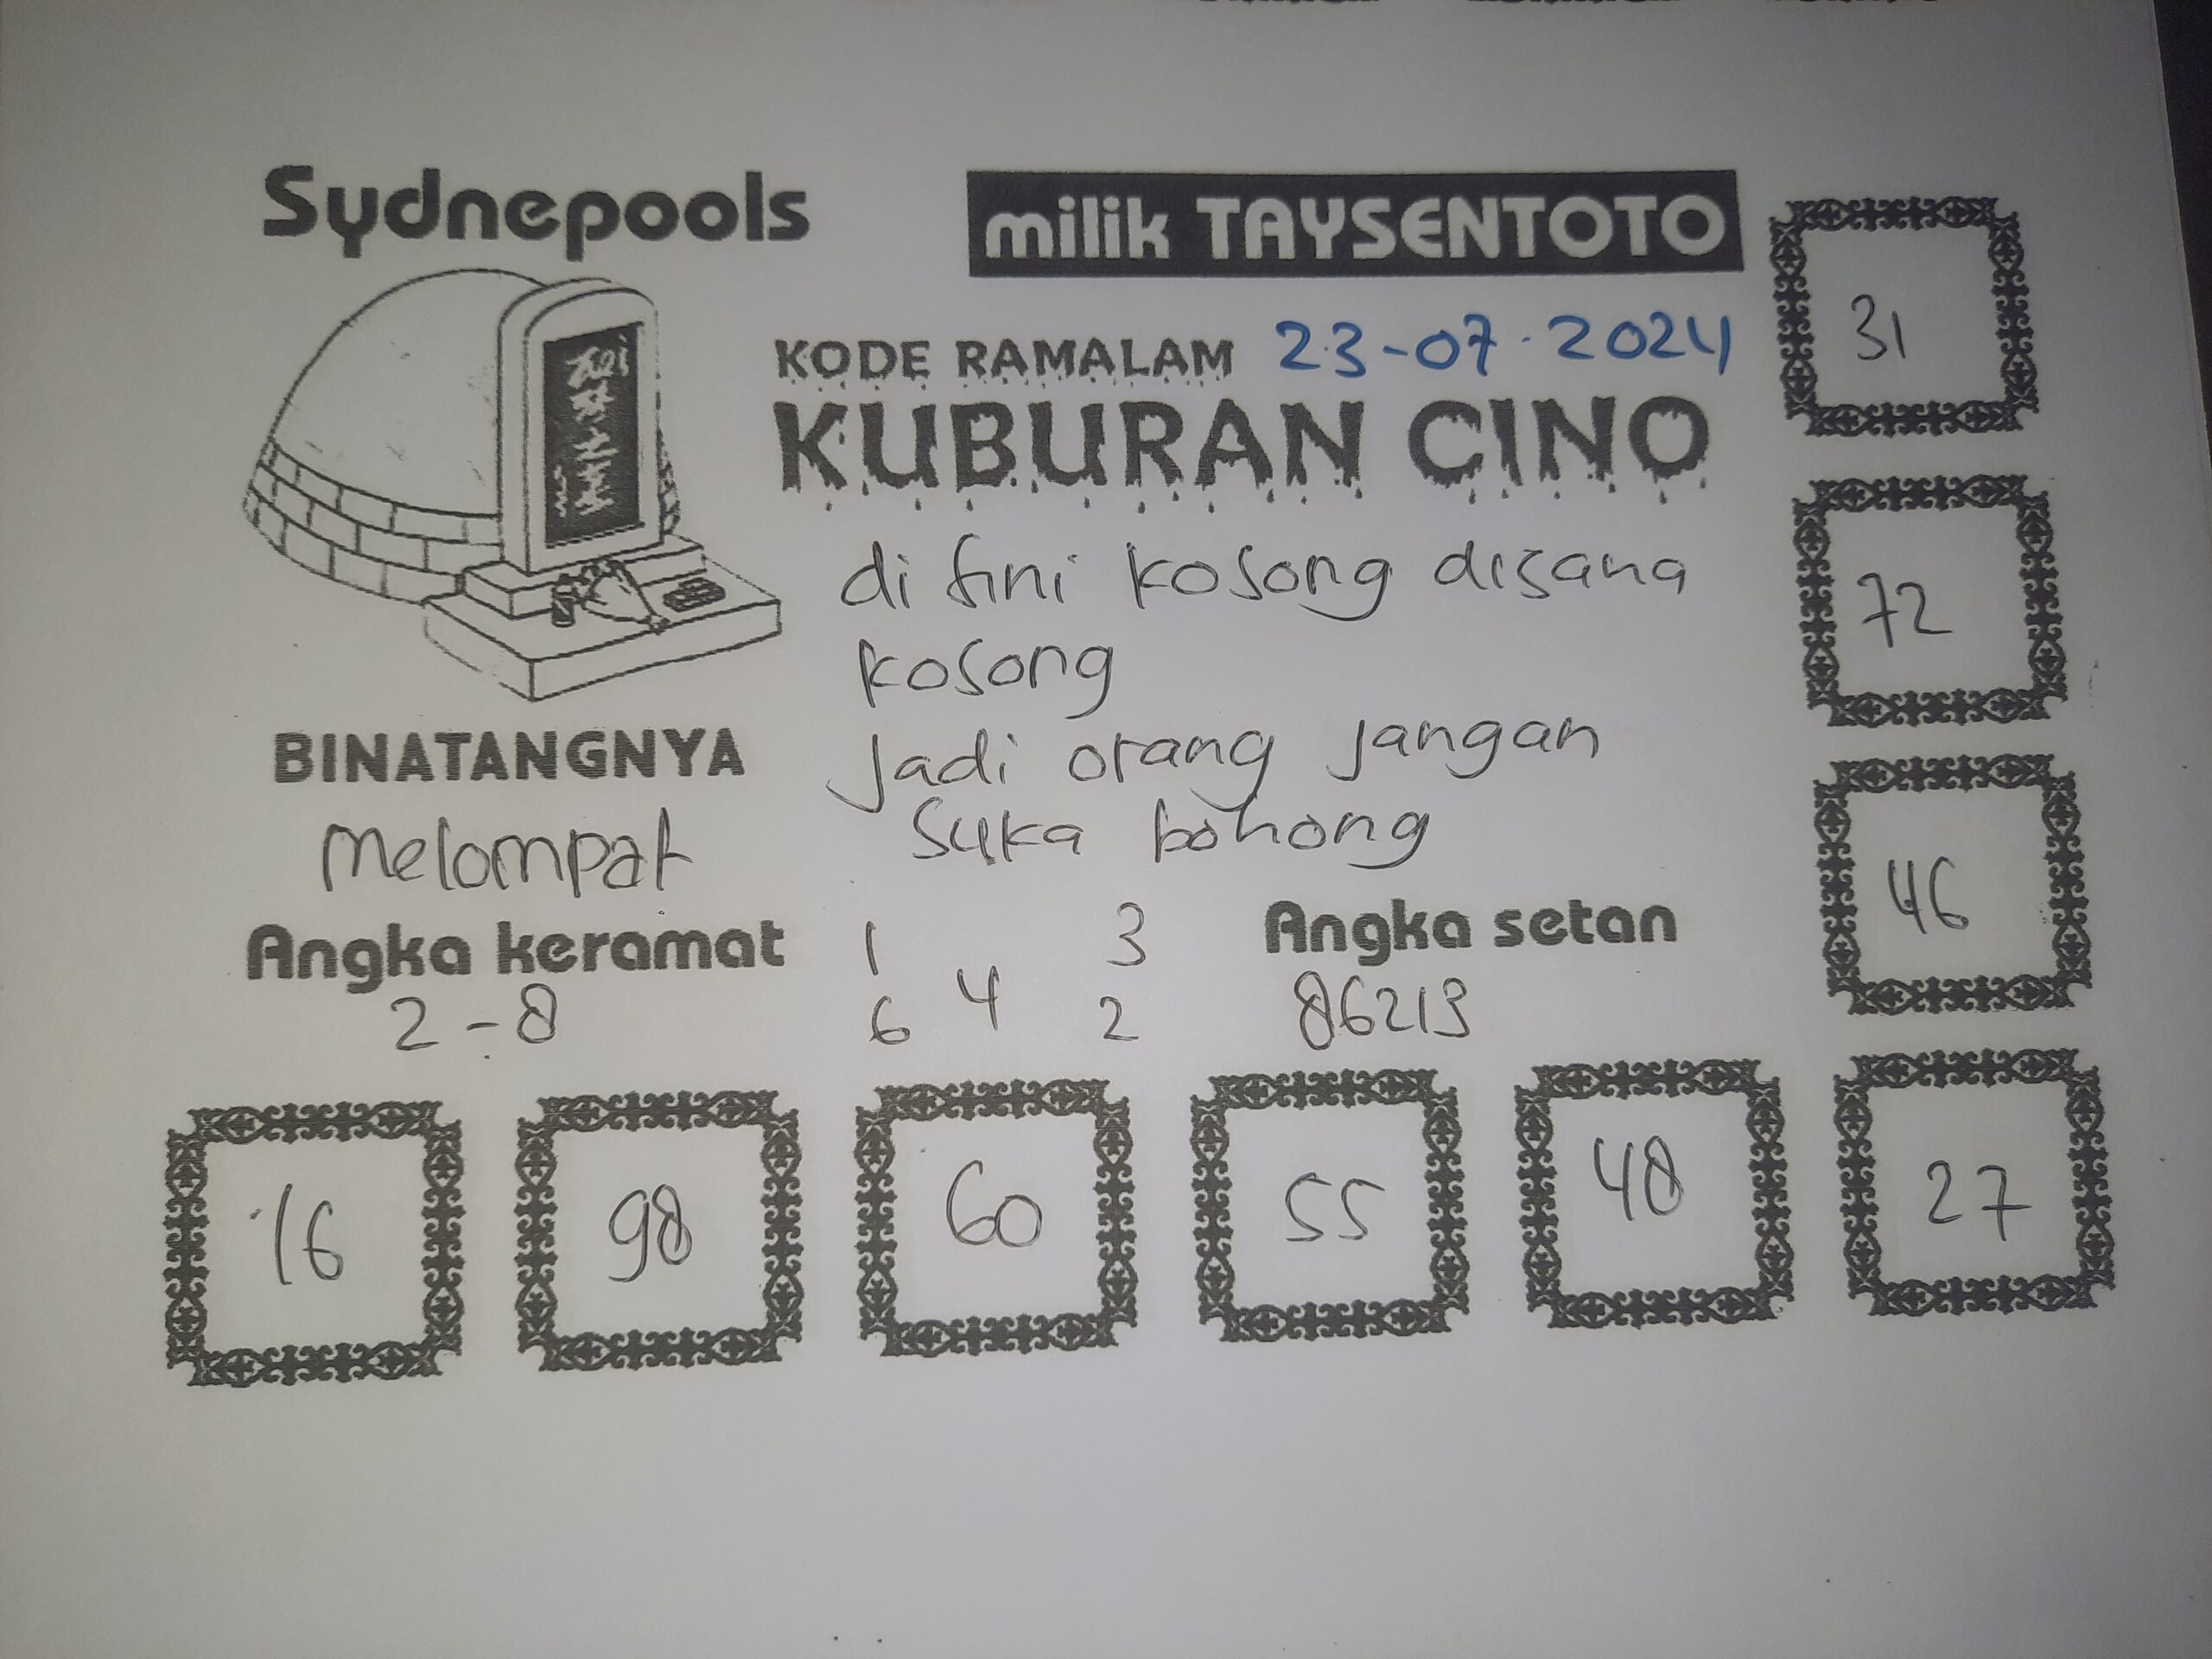 Sydnepools
milik TAYSENTOTO
KODE RAMALAM 23-07-2024
KUBURAN CINO
di sini kosong disana
kosong
Jadi orang jangan
suka bohong
BINATANGNYA
Melompat
Angka keramat
2-8
1 3
4
6 2
Angka setan
86219
31
72
46
16 98 60 55 48 27